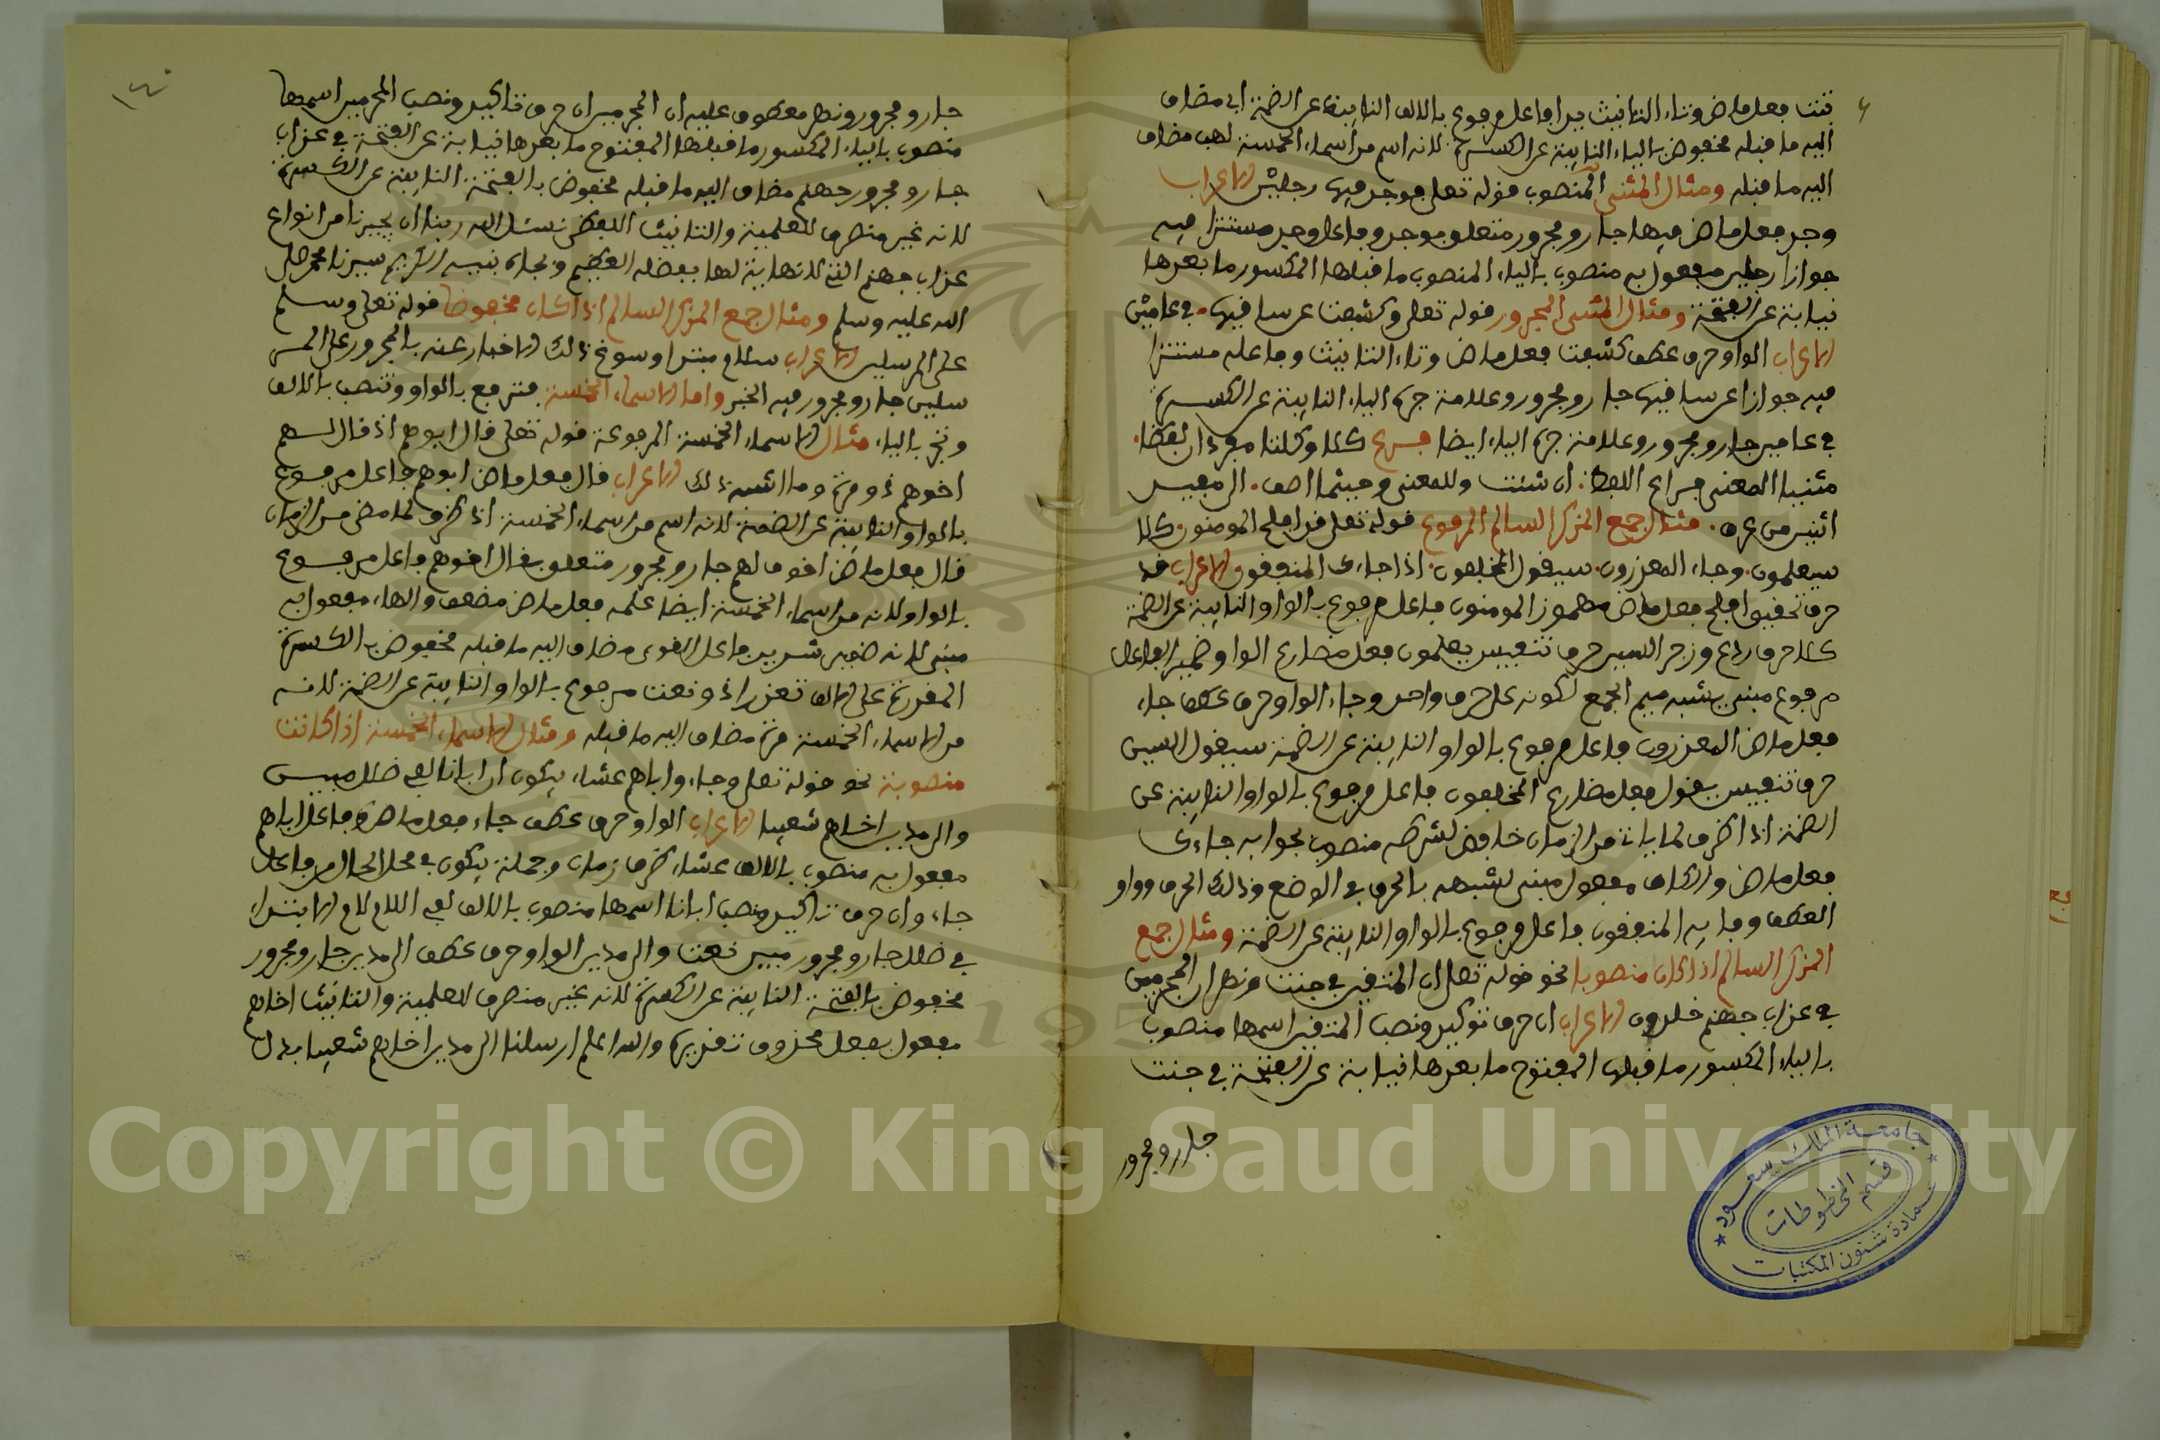 تبت فعل ماض وتاء التانيث يدا فاعل مرفوع بالالف النايبة عن الضمة ابي مضاف
اليه ما قبله مخفوض بالياء النايبة عن الكسرة لانه اسم من اسماء الخمسة لهب مضاف
اليه ما قبله ومثال المثنى المنصوب قوله تعلى فوجد فيها رجلين الاعراب
وجد فعل ماض فيها جار ومجرور متعلق بوجد وفاعل وجد مستترا فيه
جوازا رجلين مفعول به منصوب بالياء المنصوب ما قبلها المكسور ما بعدها
نيابة عن الفتحة ومثال المثنى المجرور قوله تعلى وكشفت عن ساقيها في عامين
الاعراب الواو حرف عطف كشفت فعل ماض وتاء التانيث وفاعله مستترا
فيه جوازا عن ساقيها جار ومجرور وعلامة جره الياء النايبة عن الكسرة
في عامين جار ومجرور وعلامة جره الياء ايضا فرع كلا وكلتا مفردان لفظا
مثنيا المعنى فراع اللفظ ان شئت وللمعنى وحيثما اضف الى معين
اثنين من عرف مثال جمع المذكر السالم المرفوع قوله تعلى قد افلح المومنون كلا
سيعلمون وجاء المعذرون سيقول المخلفون اذا جاءك المنفقون الاعراب قد
حرف تحقيق افلح فعل ماض مهموز المومنون فاعل مرفوع بالواو النايبة عن الضمة
كلا حرف ردع وزجر السين حرف تنفيس يعلمون فعل مضارع الواو ضمير الفاعل
مرفوع مبني يشبه ميم الجمع لكونه على حرف واحد وجاء الواو حرف عطف جاء
فعل ماض المعذرون فاعل مرفوع بالواو النايبة عن الضمة سيقول السين
حرف تنفيس يقول فعل مضارع المخلفون فاعل مرفوع بالواو النايبة عن
الضمة اذا ظرف لما يات من الزمان خافض لشرطه منصوب بجوابه جاءك
فعل ماض والكاف مفعول مبني لشبهه بالحرف في الوضع وذلك الحرف وواو
العطف وفايه المنفقون فاعل مرفوع بالواو النايبة عن الضمة ومثال جمع
المذكر السالم اذا كان منصوبا نحو قوله تعلى ان المتقين في جنت ونهر ان المجرمين
في عذاب جهنم خلدون الاعراب ان حرف توكيد ونصب المتقين اسمها منصوب
بالياء المكسور ما قبلها المفتوح ما بعدها نيابة عن الفتحة في جنت
جار ومجرور
جامعة الملك سعود
قسم المخطوطات
عمادة شئون المكتبات
١٤٠
جار ومجرور ونهر معطوف عليه ان المجرمين ان حرف تاكيد ونصب المجرمين اسمها
منصوب بالياء المكسور ما قبلها المفتوح ما بعدها نيابة عن الفتحة في عذاب
جار ومجرور جهنم مضاف اليه ما قبله مخفوض بالفتحة النايبة عن الكسرة
لانه غير منصرف للعلمية والتانيث اللفظي نسئل الله ربنا ان يجيرنا من انواع
عذاب جهنم التي لا نهاية لها بفضله العظيم وبجاه نبيه الكريم سيدنا محمد صلى
الله عليه وسلم ومثال جمع المذكر السالم اذا كان مخفوضا قوله تعلى وسلم
على المرسلين الاعراب سلام مبتدا وسوغ ذلك الاخبار عنه بالمجرور على المر
سلين جار ومجرور فيه الخبر واما الاسماء الخمسة فترفع بالواو وتنصب بالالف
وتجر بالياء مثال الاسماء الخمسة المرفوعة قوله تعلى قال ابوهم اذ قال لهم
اخوهم ذو مرة وما اشبه ذلك الاعراب قال فعل ماض ابوهم فاعل مرفوع
بالواو النايبة عن الضمة لانه اسم من اسماء الخمسة اذ ظرف لما مضى من الزمان
قال فعل ماض اخوهم لهم جار ومجرور متعلق بقال اخوهم فاعل مرفوع
بالواو لانه من اسماء الخمسة ايضا علمه فعل ماض مضعف والهاء مفعول به
مبني لانه ضمير شديد فاعل القوى مضاف اليه ما قبله مخفوض بالكسرة
المقدرة على الالف تعذرا ذو نعت مرفوع بالواو النايبة عن الضمة لانه
من الاسماء الخمسة مرة مضاف اليه ما قبله ومثال الاسماء الخمسة اذا كانت
منصوبة نحو قوله تعلى وجاءو اباهم عشاء يبكون ان ابانا لفي ضلل مبين
والى مدين اخاهم شعيبا الاعراب الواو حرف عطف جاء فعل ماض وفاعل اباهم
مفعول به منصوب بالالف عشاء ظرف زمان وجملة يبكون في محل الحال من فاعل
جاء وان حرف تاكيد ونصب ابانا اسمها منصوب بالالف لفي اللام لام الابتداء
في ضلل جار ومجرور مبين نعت والى مدين الواو حرف عطف الى مدين جار ومجرور
مخفوض بالفتحة النايبة عن الكسرة لانه غير منصرف للعلمية والتانيث اخاهم
مفعول بفعل محذوف تقديره والله اعلم ارسلنا الى مدين اخاهم شعيبا بدل
Copyright © King Saud University
1957